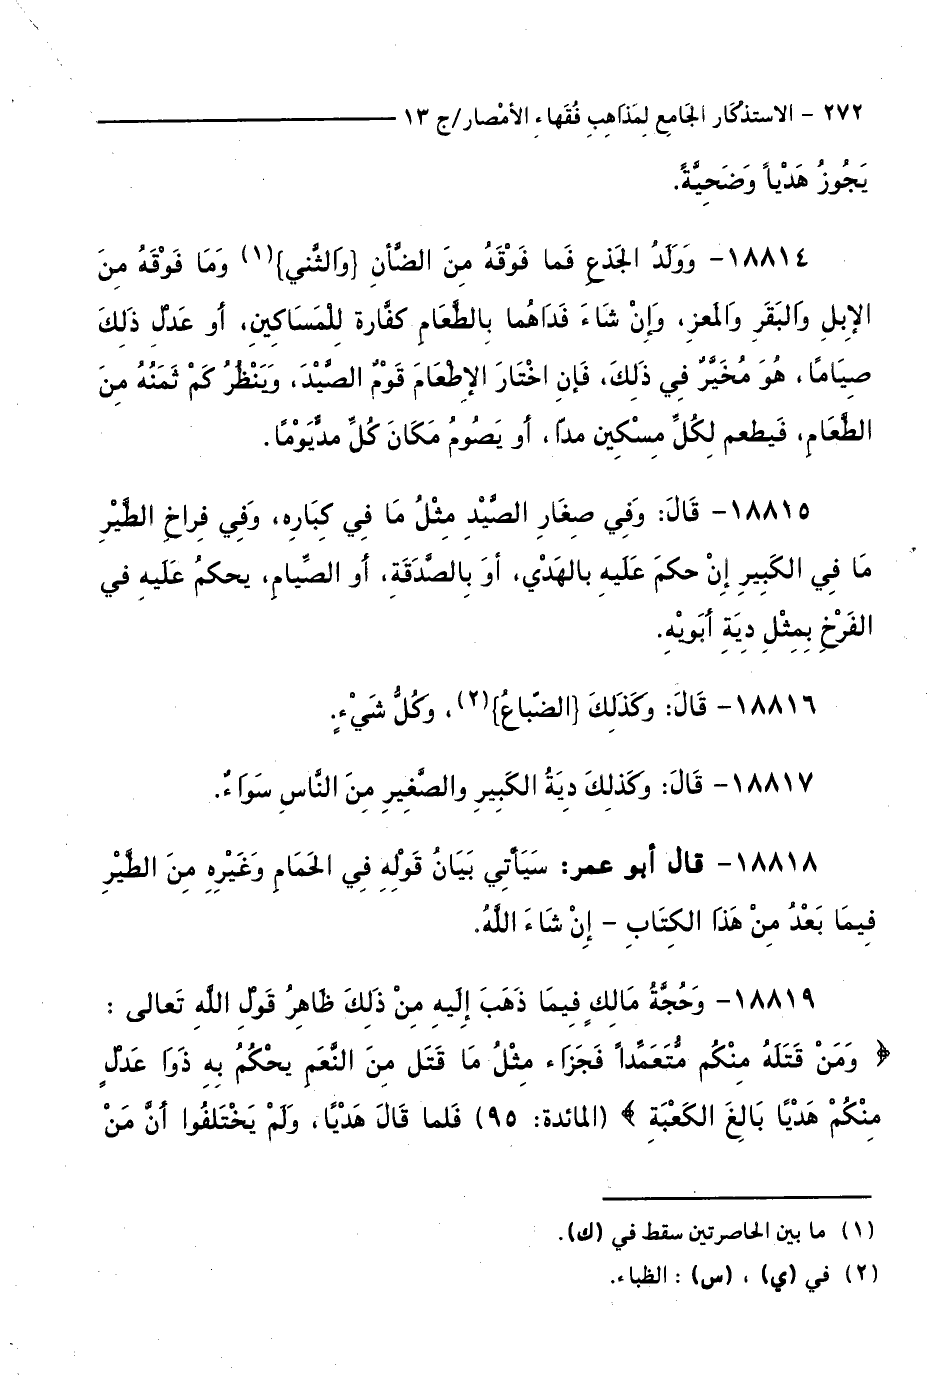 ٢٧٢ - الاستذكار الجَامع لِمَذاهِبِ فُقَهاءِ الأمْصار/ج ١٣
يَجُوزُ هَدْياً وَضَحِيَّةً.
١٨٨١٤- وَوَلَدُ الجَذعِ فَما فَوْقَهُ مِنَ الضَّأنِ {وَالثَّني}(١) وَمَا فَوْقَهُ مِنَ
الإبلِ وَالبَقَرِ وَالمَعزِ، وَإنْ شَاءَ فَدَاهُما بِالطَّعَامِ كفَّارة لِلْمَسَاكِينِ، أو عَدلُ ذَلِكَ
صِيَامًا، هُوَ مُخَيَّرٌ في ذَلِكَ، فَإن اخْتَارَ الإطْعَامَ قَوْمُ الصَّيْدَ، وَيَنْظُرُ كَمْ ثَمَنُهُ مِنَ
الطَّعَامِ، فَيطعم لِكُلِّ مِسْكين مدًا، أو يَصُومُ مَكَانَ كُلِّ مدٍّيَوْمًا.
١٨٨١٥- قَالَ: وَفِي صِغَارِ الصَّيْدِ مِثْلُ مَا فِي كبَارِه، وَفي فراخِ الطَّيْرِ
مَا فِي الكَبِيرِ إنْ حكمَ عَلَيهِ بالهَدْي، أوَ بِالصَّدَقَةِ، أو الصِّيامِ، يحكمُ عَلَيهِ في
الفَرْخِ بِمِثْلِ ديَةِ أبَويْهِ.
١٨٨١٦- قَالَ: وكَذَلِكَ {الضّباعُ}(٢)، وَكُلُّ شَيْءٍ.
١٨٨١٧- قَالَ: وكَذلِكَ ديَةُ الكَبيرِ والصَّغيرِ مِنَ النَّاسِ سَوَاءٌ.
١٨٨١٨- قال أبو عمر: سَيَأتي بَيَانُ قَوْلِهِ فِي الحَمَامِ وَغَيْرِهِ مِنَ الطَّيْرِ
فِيمَا بَعْدُ مِنْ هَذَا الكِتَابِ - إنْ شَاءَ اللَّهُ.
١٨٨١٩- وَحُجَّةُ مَالِكٍ فيمَا ذَهَبَ إلَيهِ مِنْ ذَلِكَ ظَاهِرُ قَولُ اللَّهِ تَعالى :
﴿ وَمَنْ قَتَلَهُ مِنْكُم مُّتَعَمِّداً فَجَزَاء مثْلُ مَا قَتَل منَ النَّعَمِ يحْكُمُ بِهِ ذَوَا عَدلٍ
مِنْكُمْ هَدْيًا بَالِغَ الكَعْبَةِ ﴾ (المائدة: ٩٥) فَلما قَالَ هَدْيًا، وَلَمْ يَخْتَلفُوا أنَّ مَنْ
(١) ما بين الحاصرتين سقط في (ك).
(٢) في (ي) ، (س) : الظباء.